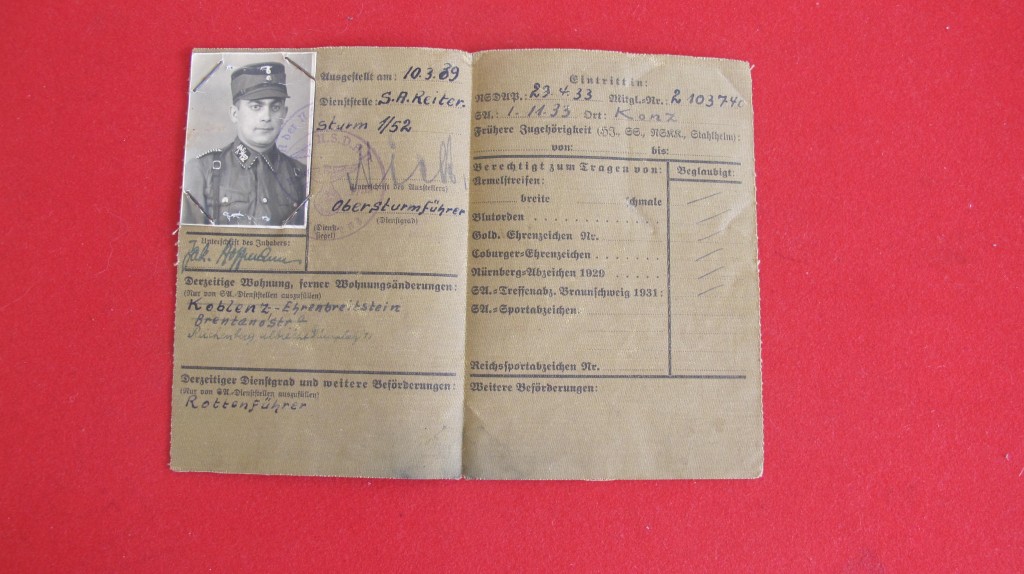 Ausgestellt am: 10.3.39
Dienststelle: S.A. Reiter.
Sturm 1/52
N.S.D.A.P.
(Unterschrift des Ausstellers)
Obersturmführer
(Dienst-
siegel)
(Dienstgrad)
Unterschrift des Inhabers:
Jak. Hoffmann
Derzeitige Wohnung, ferner Wohnungsänderungen:
(Nur von SA.-Dienststellen auszufüllen)
Koblenz-Ehrenbreitstein
Brentanostr
Derzeitiger Dienstgrad und weitere Beförderungen:
(Nur von SA.-Dienststellen auszufüllen)
Rottenführer
Eintritt in:
NSDAP.: 23.4.33 Mitgl.-Nr.: 2 103740
SA.: 1.11.33 Ort: Konz
Frühere Zugehörigkeit (HJ., SS, NSKK., Stahlhelm):
von: bis:
Berechtigt zum Tragen von: Beglaubigt:
Armelstreifen:
breite schmale
Blutorden . . . . . . . . . . .
Gold. Ehrenzeichen Nr.
Coburger-Ehrenzeichen . . . . .
Nürnberg-Abzeichen 1929 . . . .
SA.-Treffenabz. Braunschweig 1931:
SA.-Sportabzeichen:
Reichssportabzeichen Nr.
Weitere Beförderungen: